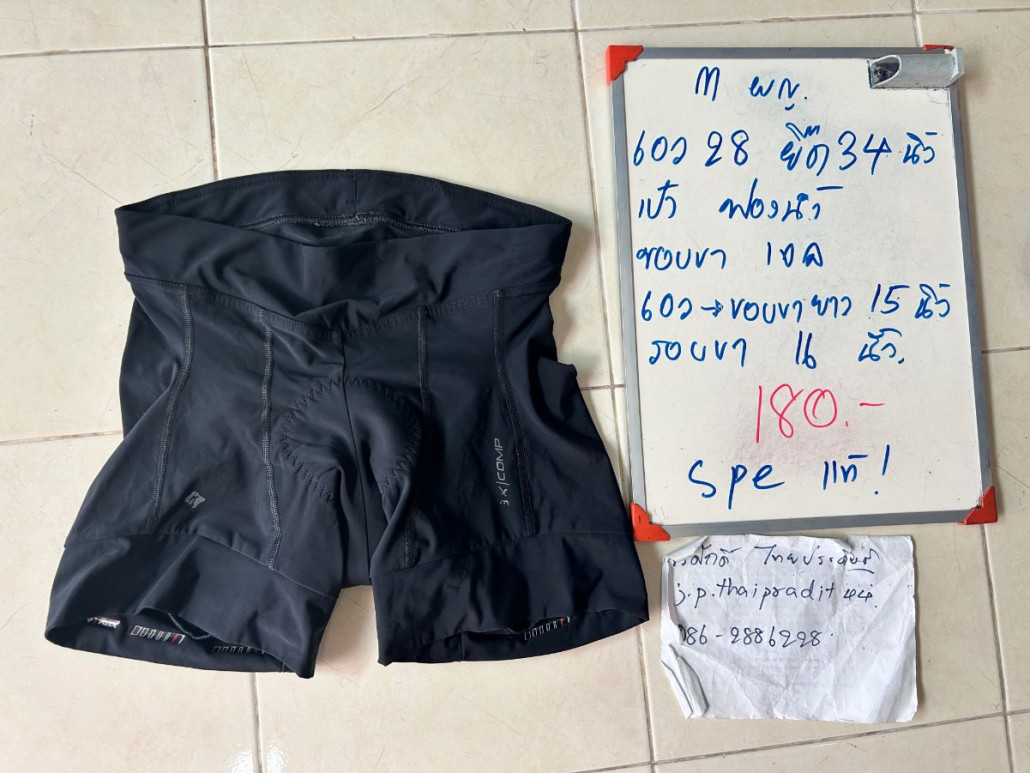 M ผญ.
เอว 28 ยืด 34 นิ้ว
เป้า ฟองน้ำ
ขอบขา เจล
เอว → ขอบขา ยาว 15 นิ้ว
รอบขา 16 นิ้ว.
180.-
Spe แท้!
COMP
ไทยประดิษฐ์
j.p.thaipradit
086-2886228